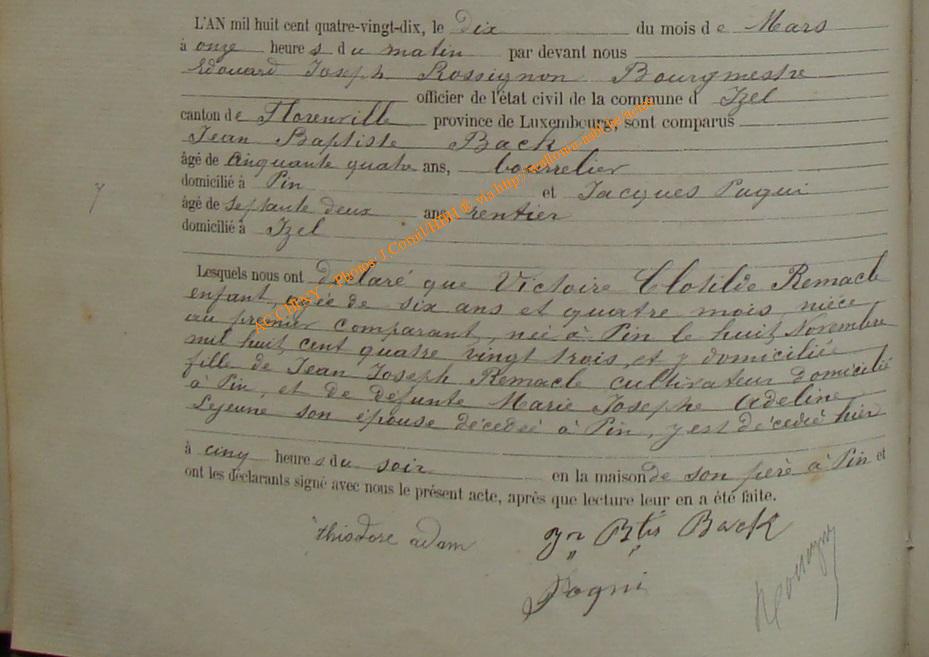 L'AN mil huit cent quatre-vingt-dix, le Dix du mois de Mars
à onze heures du matin par devant nous
Edouard Joseph Rossignon Bourgmestre
officier de l'état civil de la commune d' Izel
canton de Florenville province de Luxembourg, sont comparus
Jean Baptiste Back
âgé de Cinquante quatre ans, bourrelier
domicilié à Pin et Jacques Pagui
âgé de Septante deux ans, rentier
domicilié à Izel
Lesquels nous ont déclaré que Victoire Clotilde Remacle
enfant, agée de six ans et quatre mois, nièce
au premier comparant, née à Pin le huit Novembre
mil huit cent quatre vingt trois, et y domiciliée
fille de Jean Joseph Remacle cultivateur domicilié
à Pin, et de defunte Marie Josephe Adeline
Lejeune son épouse décédée à Pin, y est décédée hier
à cinq heures du soir en la maison de son père à Pin et
ont les déclarants signé avec nous le présent acte, après que lecture leur en a été faite.
thisdore adam
Jn Bte Back
Pagui